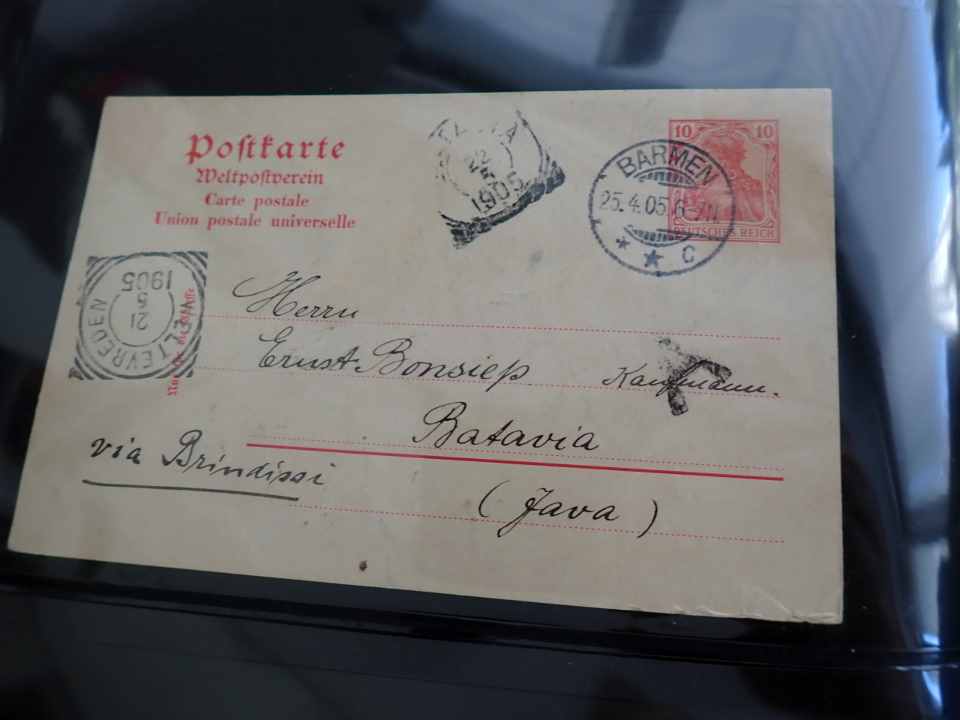 Postkarte
Weltpostverein
Carte postale
Union postale universelle
22
5
1905
BARMEN
25.4.05. 6-7N.
* * C
10 10
DEUTSCHES REICH
WELTEVREDEN
21
5
1905
Herrn
Ernst Bonsiep Kaufmann.
Batavia
(Java)
via Brindissi